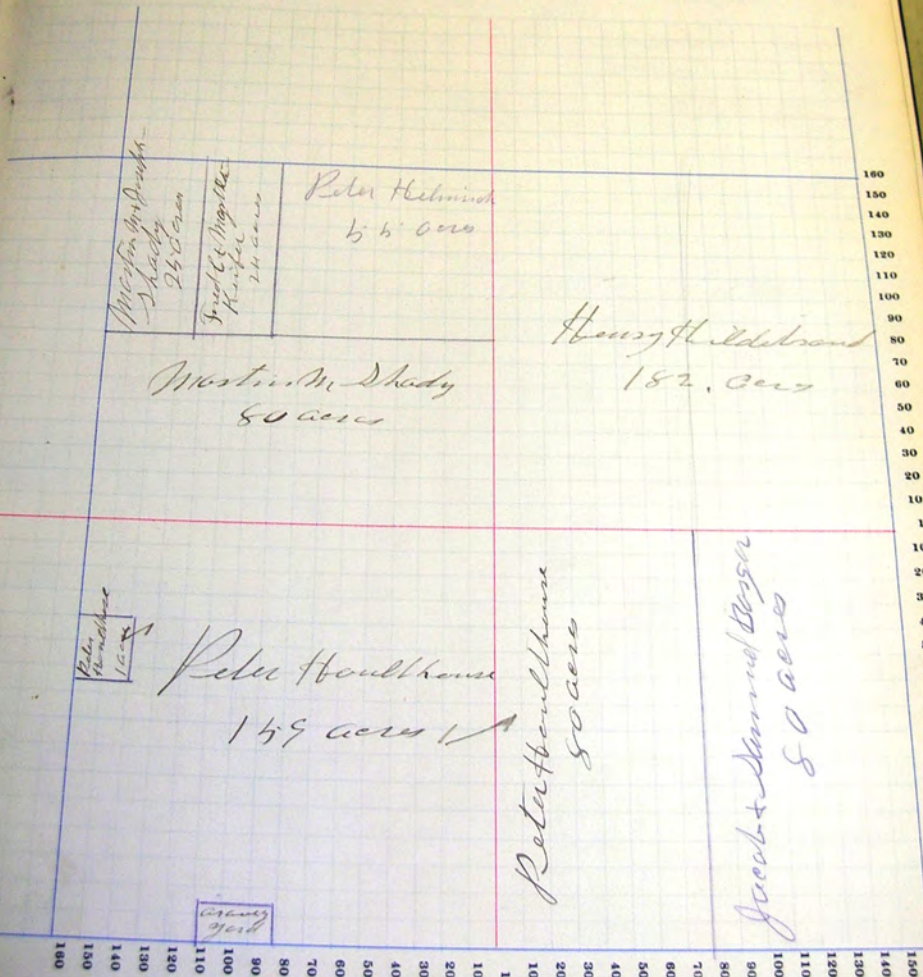 Martin M & Joseph
Shady
25 acres
Fred C & Martha
Keifer
24 acres
Peter Helmich
55 acres
Henry Hildebrand
182. acres
Martin M Shady
80 acres
Peter
Houlthouse
1 acre
Peter Houlthouse
159 acres
Peter Houlthouse
80 acres
Jacob & Samuel
80 acres
yard
160
150
140
130
120
110
100
90
80
70
60
50
40
30
20
10
1
160 150 140 130 120 110 100 90 80 70 60 50 40 30 20 10 1 10 20 30 40 50 60 70 80 90 100 110 120 130 140